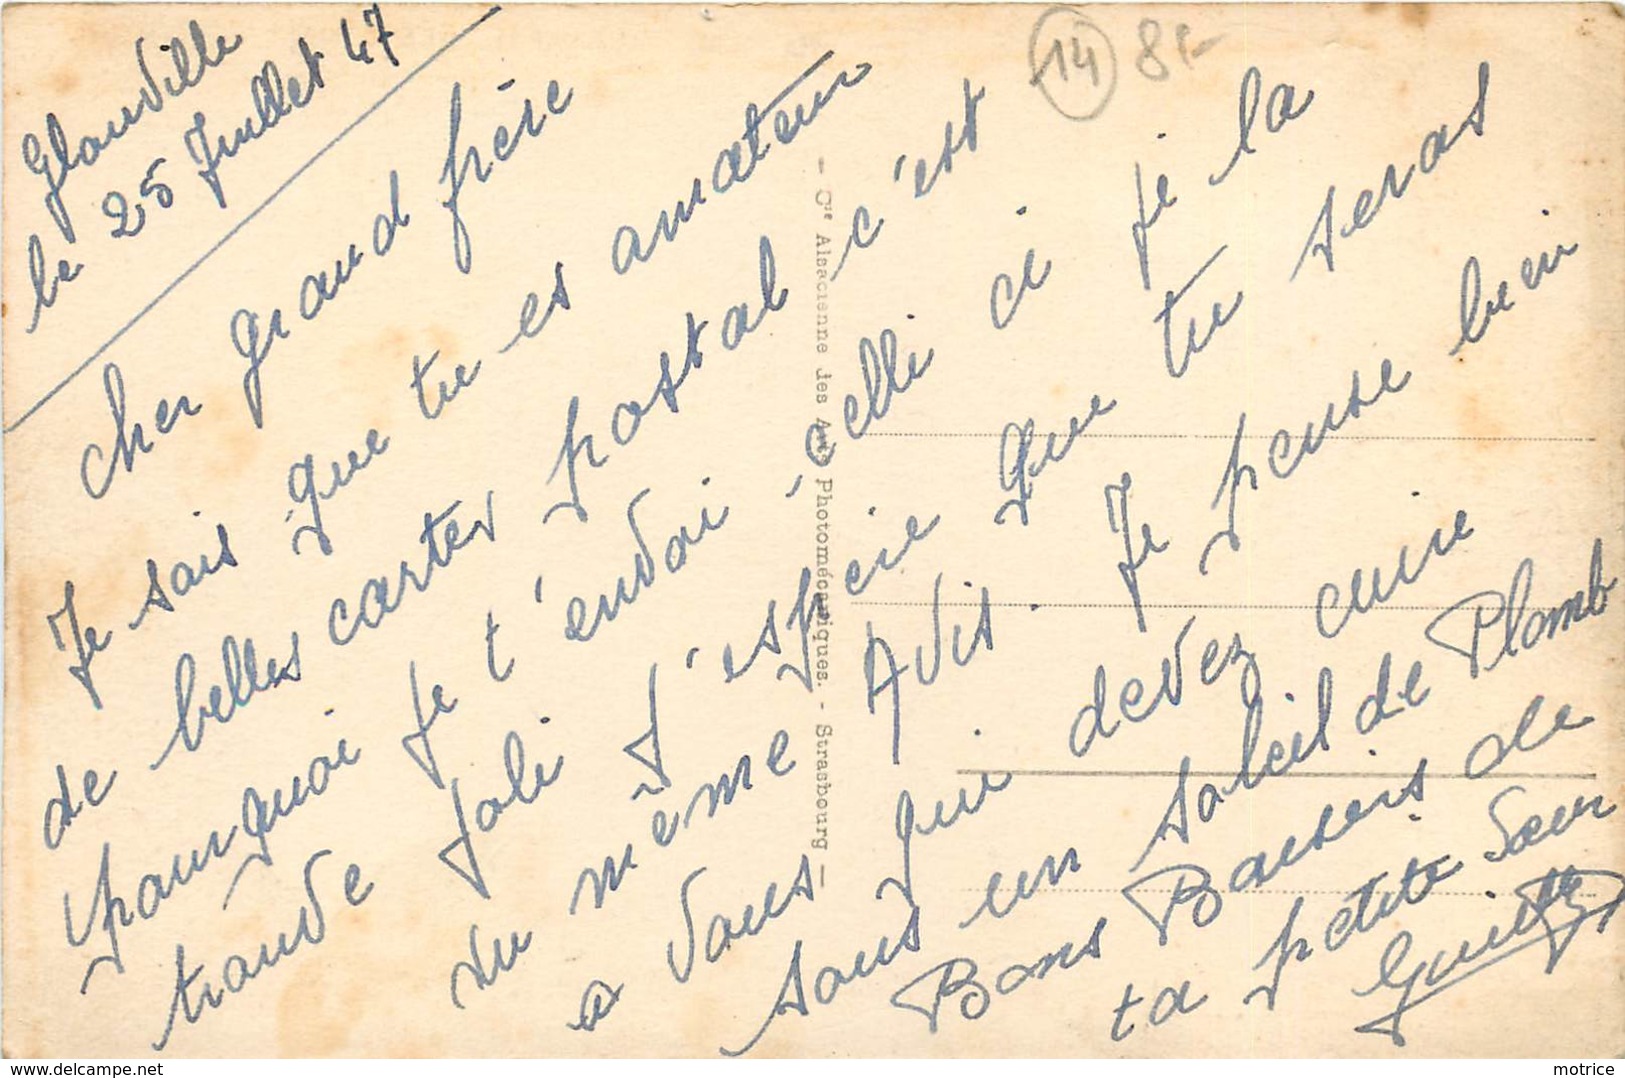 Glanville
le 25 Juillet 47
14 8
cher grand frère
Je sais que tu es amateur
de belles cartes postal c'est
pourquoi je t'envoi celle ci je la
trouve joli j'espère que tu seras
du même Avis. Je pense bien
a vous qui devez cuire
sous un soleil de Plomb
Bons Baisers de
ta petite Sœur
- Cie Alsacienne des Arts Photomécaniques. - Strasbourg -
https://www.delcampe.net
motrice